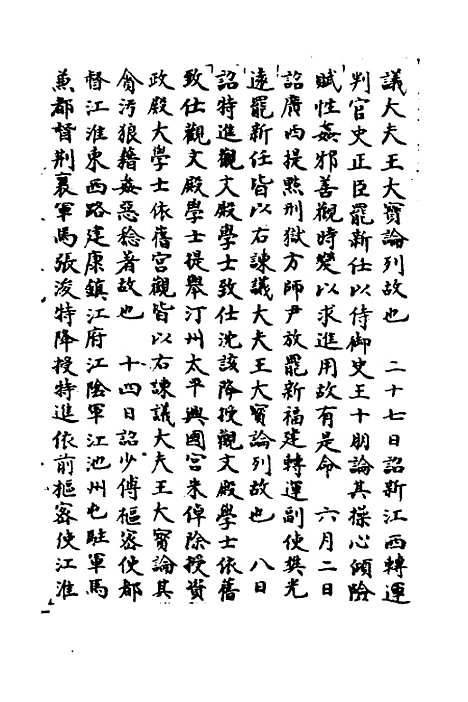 議大夫王大寳論列故也　二十七日詔新江西轉運
判官史正臣罷新任以侍御史王十朋論其操心傾險
賦性姦邪善觀時變以求進用故有是命　六月二日
詔廣西提㸃刑獄方師尹放罷新福建轉運副使樊光
遠罷新任皆以右諌議大夫王大寳論列故也　八日
詔特進觀文殿學士致仕沈該降授觀文殿學士依舊
致仕觀文殿學士提舉汀州太平興國宫朱倬除授資
政殿大學士依舊宮觀皆以右諌議大夫王大寳論其
貪汚狼籍姦惡稔著故也　十四日詔少傅樞宻使都
督江淮東西路建康鎮江府江陰軍江池州屯駐軍馬
兼都督荆襄軍馬張浚特降授特進依前樞宻使江淮